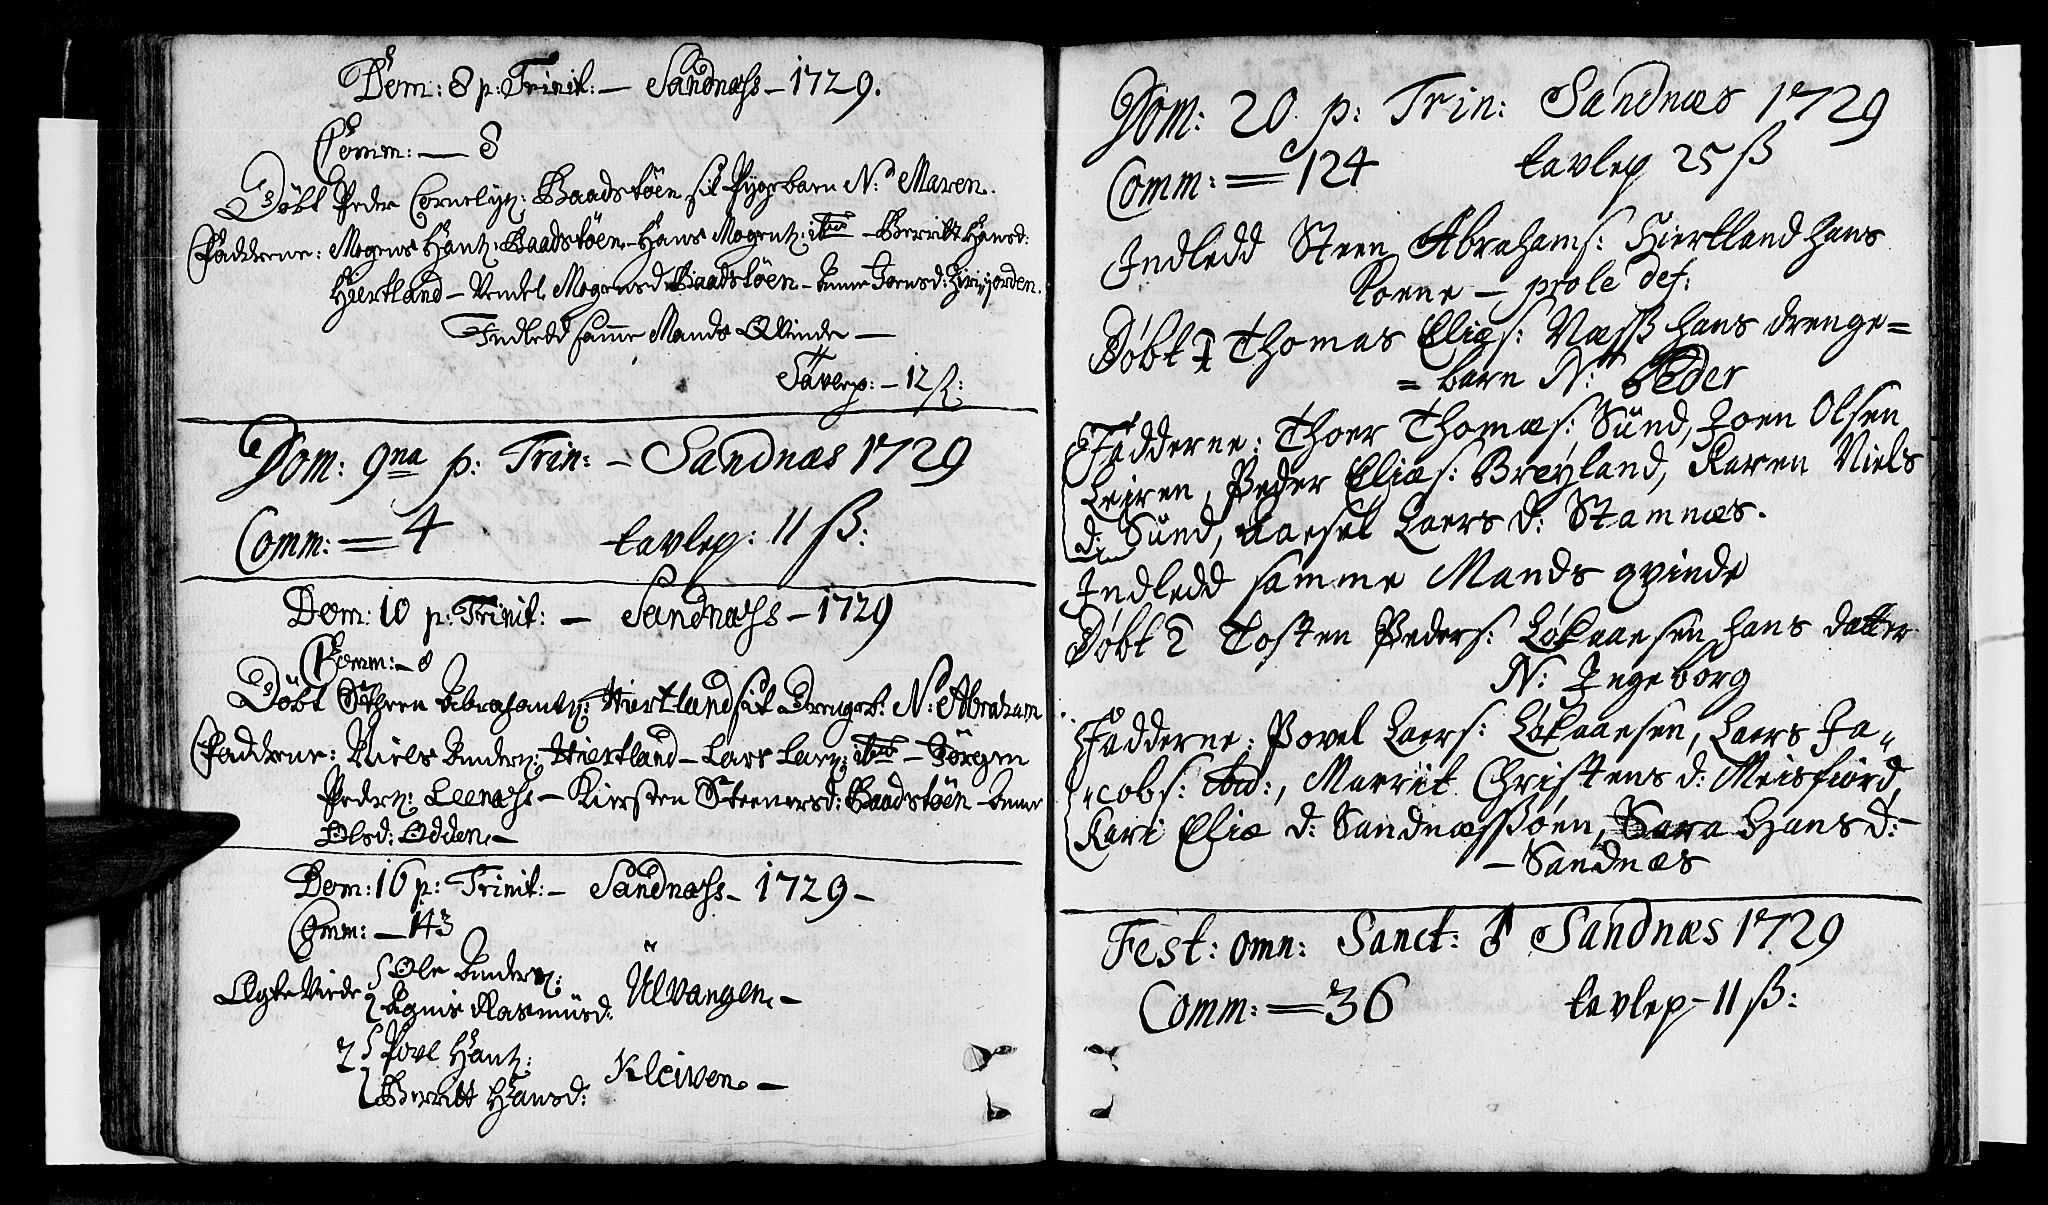 Dom: 8 p: Trinit: — Sandnæss — 1729.
Comm: — 8
Döbt Peder Cornelijß: Baadstöen sit Pigebarn N: Maren.
Faddrene: Mogens Hanß: Baadstöen — Hans Mogenß: ibid — Berritt Hansd:
Hiertland — Vendel Mogensd: Baadstöen — Anne Joensd:
Indledd samme Mands Qvinde —
Tavlep: — 12 ß:
Dom: 9na p: Trin: — Sandnæs 1729
Comm: = 4 tavlep: 11 ß:
Dom: 10 p: Trinit: — Sandnæss — 1729
Comm: — 8
Döbt Stheen Abrahamß: Hiertland sit Drengeb: N: Abraham
Faddrene: Niels Anderß: Hiertland — Lars Larß: ibid — Jörgen
Pederß: Leenæss — Kirsten Steenersd: Baadstöen — Anne
Olsd: Odden —
Dom: 16 p: Trinit: — Sandnæss — 1729 —
Comm: — 143
Ægte Viede Ole Anderß:
Agnis Rasmüsd: Ülvangen —
2 Povl Hanß:
Berritt Hansd: Kleiven —
Dom: 20 p: Trin: Sandnæs 1729
Comm: = 124 tavlep 25 ß
Indledd Steen Abrahams: Hiertland hans
Kone — prole def:
Döbt 1 Thomas Eliæs: Næss hans drenge=
= barn N: Peder
Fadderne: Thoer Thomæs: Sünd, Joen Olsen
Leiren, Peder Eliæs: Breyland, Karen Niels
d: Sünd, Aasel Laers d: Stamnæs.
Indledd samme Mands qvinde
Döbt 2 Tosten Peders: Lökaasen hans datter
N: Ingeborg
Fadderne: Povel Laers: Lökaasen, Laers Ja-
cobs: ibid:, Marrit Christens d: Meisfiord,
Kari Eliæ d: Sandnæssöen, Sara Hans d:
— Sandnæs
Fest: omn: Sanct: Sandnæs 1729
Comm: = 36 tavlep — 11 ß: